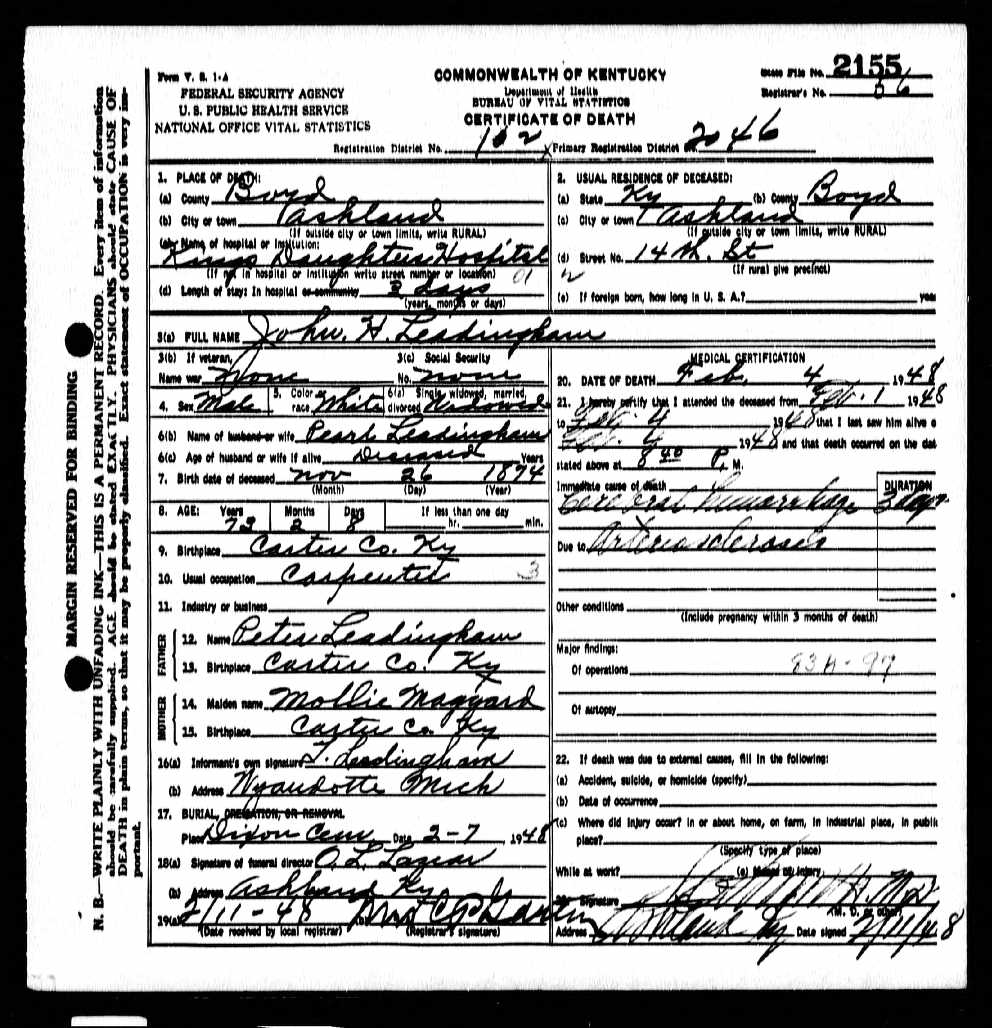 Form V. S. 1-A
FEDERAL SECURITY AGENCY
U. S. PUBLIC HEALTH SERVICE
NATIONAL OFFICE VITAL STATISTICS
COMMONWEALTH OF KENTUCKY
Department of Health
BUREAU OF VITAL STATISTICS
CERTIFICATE OF DEATH
State File No. 2155
Registrar's No. 56
Registration District No. 102 Primary Registration District 2046
MARGIN RESERVED FOR BINDING
N. B.—WRITE PLAINLY WITH UNFADING INK—THIS IS A PERMANENT RECORD. Every item of information
should be carefully supplied. AGE should be stated EXACTLY. PHYSICIANS should state CAUSE OF
DEATH in plain terms, so that it may be properly classified. Exact statement of OCCUPATION is very im-
portant.
1. PLACE OF DEATH:
(a) County Boyd
(b) City or town Ashland
(If outside city or town limits, write RURAL)
(c) Name of hospital or institution:
Kings Daughters Hospital
(If not in hospital or institution write street number or location)
(d) Length of stay: In hospital or community 3 days
(years, months or days)
2. USUAL RESIDENCE OF DECEASED:
(a) State Ky (b) County Boyd
(c) City or town Ashland
(If outside city or town limits, write RURAL)
(d) Street No. 14 th. St
(If rural give precinct)
(e) If foreign born, how long in U. S. A.? yea
3(a) FULL NAME John. H. Leadingham
3(b) If veteran,
Name war None
3(c) Social Security
No. none
4. Sex Male 5. Color or race White 6(a) Single, widowed, married, divorced Widowed
6(b) Name of husband or wife Pearl Leadingham
6(c) Age of husband or wife if alive Deceased Years
7. Birth date of deceased Nov 26 1874
(Month) (Day) (Year)
8. AGE: Years Months Days If less than one day
73 2 8 hr. min.
9. Birthplace Carter Co. Ky
10. Usual occupation Carpenter 3
11. Industry or business
FATHER
12. Name Peter Leadingham
13. Birthplace Carter Co. Ky
MOTHER
14. Maiden name Mollie Maggard
15. Birthplace Carter Co. Ky
16(a) Informant's own signature T. Leadingham
(b) Address Wyandotte Mich
17. BURIAL, CREMATION, OR REMOVAL
Place Dixon Cem Date 2-7 1948
18(a) Signature of funeral director O. L. Lazear
(b) Address Ashland Ky
19(a) 2/11-48 (b) Mrs C P
(Date received by local registrar) (Registrar's signature)
MEDICAL CERTIFICATION
20. DATE OF DEATH Feb. 4 1948
21. I hereby certify that I attended the deceased from Feb. 1 1948
to Feb. 4 1948 that I last saw him alive o
Feb. 4 1948 and that death occurred on the dat
stated above at 8 40 P. M.
Immediate cause of death DURATION
Cerebral Hemorrhage 3 days
Due to Arteriosclerosis
Other conditions
(Include pregnancy within 3 months of death)
Major findings:
Of operations 83A-97
Of autopsy
22. If death was due to external causes, fill in the following:
(a) Accident, suicide, or homicide (specify)
(b) Date of occurrence
(c) Where did injury occur? in or about home, on farm, in industrial place, in public
place?
(Specify type of place)
While at work? (e) Means of injury
23. Signature
(M. D. or other)
Address Ashland Ky Date signed 2/11/48